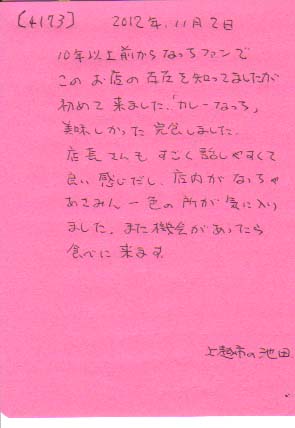 [4173] 2012年.11月2日
10年以上前からなっちファンで
このお店の存在を知ってましたが
初めて来ました。「カレーなっち」
美味しかった 完食しました.
店長さんも すごく話しやすくて
良い感じだし、店内がなっちゃ
あてみん一色の所が気に入り
ました。また機会があったら
食べに来ます
上越市の池田.